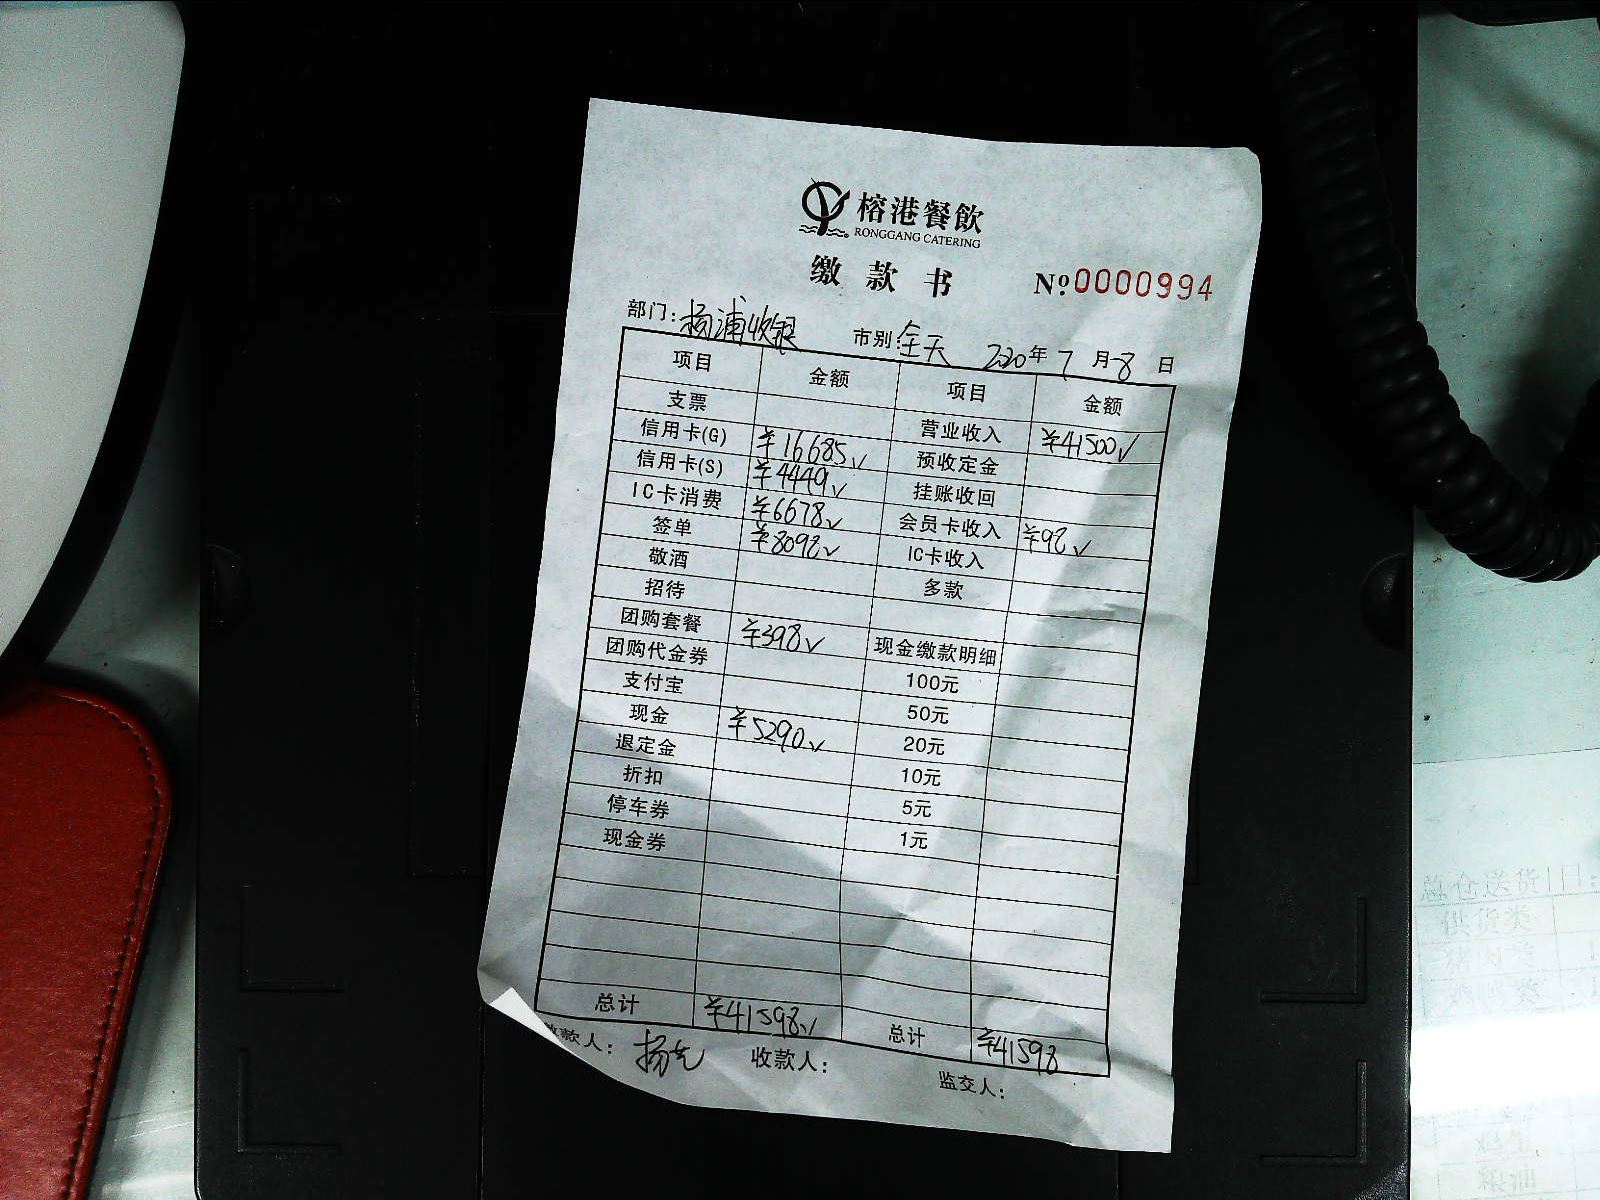 榕港餐飲
RONGGANG CATERING
缴款书 №0000994
部门:杨浦收银 市别:全天 2020年7月8日
项目 金额 项目 金额
支票 营业收入 ¥41500√
信用卡(G) ¥16685√ 预收定金
信用卡(S) ¥4449√ 挂账收回
IC卡消费 ¥6678√ 会员卡收入 ¥98√
签单 ¥8098√ IC卡收入
敬酒 多款
招待
团购套餐 ¥398√ 现金缴款明细
团购代金券 100元
支付宝 50元
现金 ¥5290√ 20元
退定金 10元
折扣 5元
停车券 1元
现金券
总计 ¥41598√ 总计 ¥41598
款人: 杨 收款人: 监交人:
总仓送货 日:
供货类